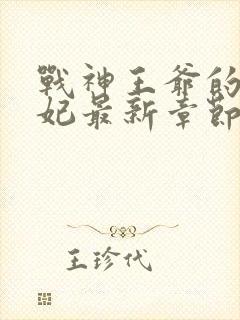 戰神王爺的
妃最新章節
王珍代